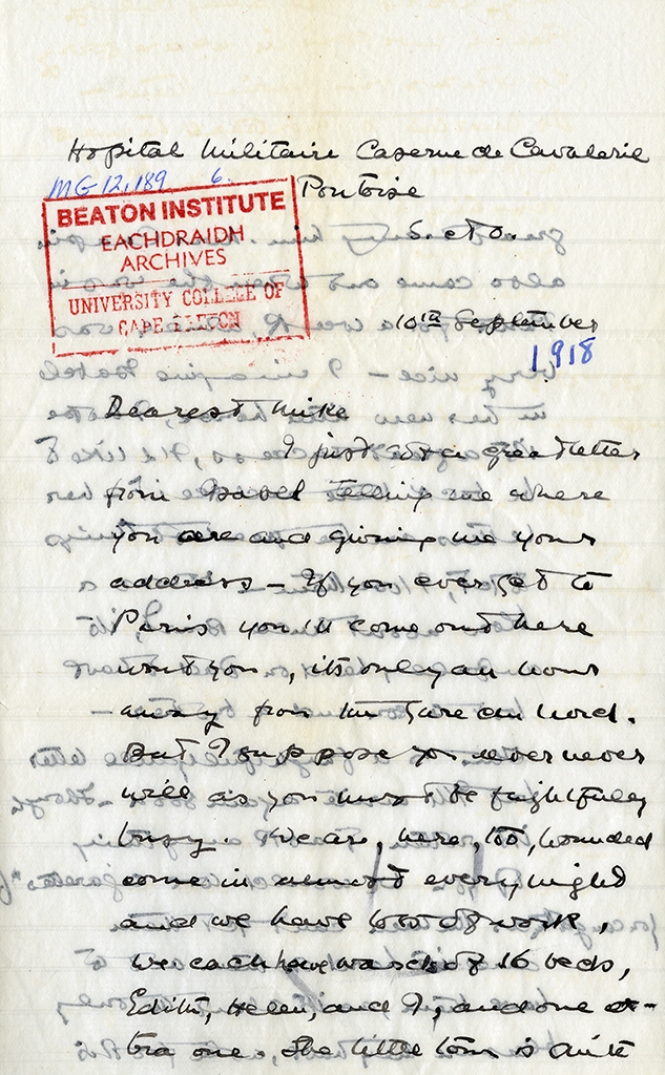 Hopital Militaire Caserne de Cavalerie
MG 12,189 6.
Pontoise
BEATON INSTITUTE
EACHDRAIDH
ARCHIVES
UNIVERSITY COLLEGE OF
CAPE BRETON
S. et O.
10th September
1918
Dearest Mike
I just got a great letter
from Isabel telling me where
you are and giving me your
address – If you ever get to
Paris you'll come out here
won't you, its only an hour
away from the Gare du Nord.
But I suppose you never never
will as you must be frightfully
busy. We are, here, too, wounded
come in almost every night
and we have lots of work,
we each have wards of 16 beds,
Edith, Helen, and I, and one ex-
tra one. The little town is quite